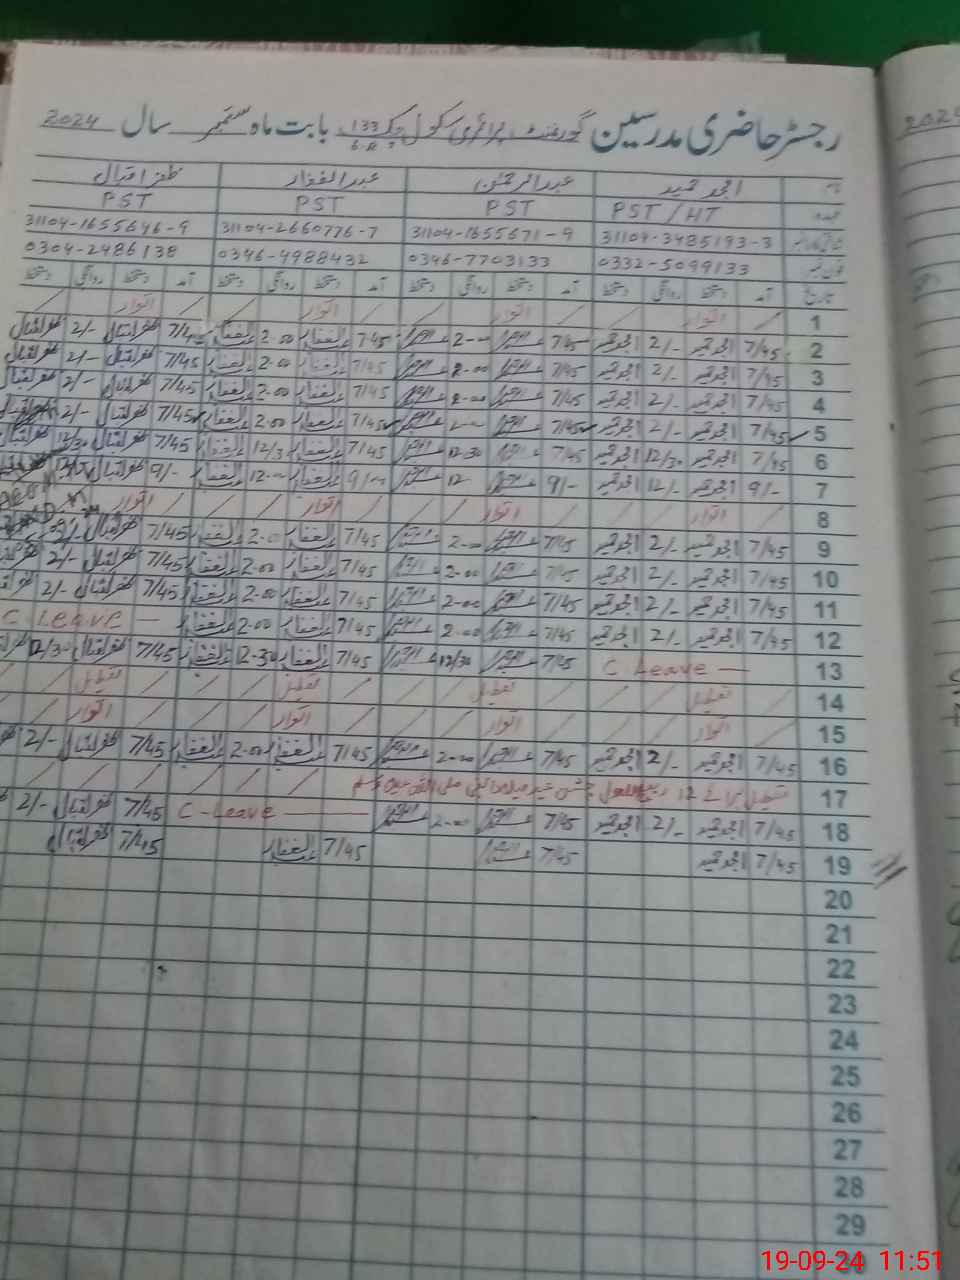 رجسٹر حاضری مدرسین گورنمنٹ پرائمری سکول چک 133 6.R بابت ماہ ستمبر سال 2024
نام امجد حمید عبدالرحمٰن عبدالغفار ظفر اقبال
عہدہ PST / HT PST PST PST
31104-3485193-3 31104-1655671-9 31104-2660776-7 31104-1655646-9
فون نمبر 0332-5099133 0346-7703133 0346-4988432 0304-2486138
تاریخ آمد دستخط روانگی دستخط آمد دستخط روانگی دستخط آمد دستخط روانگی دستخط آمد دستخط روانگی دستخط
1 اتوار اتوار اتوار اتوار
2 7/45 امجد حمید 2/- امجد حمید 7/45 2-00 7-45 عبدالغفار 2-00 عبدالغفار ظفر اقبال 2/- ظفر اقبال
3 7/45 امجد حمید 2/- امجد حمید 7/45 2-00 7/45 عبدالغفار 2-00 عبدالغفار 7/45 ظفر اقبال 2/- ظفر اقبال
4 7/45 امجد حمید 2/- امجد حمید 7/45 2-00 7/45 عبدالغفار 2-00 عبدالغفار 7/45 ظفر اقبال 2/- ظفر اقبال
5 7/45 امجد حمید 2/- امجد حمید 7/45 2-00 7/45 عبدالغفار 2-00 عبدالغفار 7/45 ظفر اقبال 2/- ظفر اقبال
6 7/45 امجد حمید 12/30 امجد حمید 7/45 12-30 7/45 عبدالغفار 12/3 عبدالغفار 7/45 ظفر اقبال 12/30 ظفر اقبال
7 9/- امجد حمید 12/- امجد حمید 9/- 12 9/- عبدالغفار 12-00 عبدالغفار 9/- ظفر اقبال
8 اتوار اتوار اتوار اتوار
9 7/45 امجد حمید 2/- امجد حمید 7/45 2-00 7/45 عبدالغفار 2-0 عبدالغفار 7/45 ظفر اقبال
10 7/45 امجد حمید 2/- امجد حمید 7/45 2-00 7/45 عبدالغفار 2-00 عبدالغفار 7/45 ظفر اقبال 2/-
11 7/45 امجد حمید 2/- امجد حمید 7/45 2-00 7/45 عبدالغفار 2-00 عبدالغفار 7/45 ظفر اقبال 2/-
12 7/45 امجد حمید 2/- امجد حمید 7/45 2-00 7/45 عبدالغفار 2-00 عبدالغفار C Leave
13 C Leave 7/45 12/30 7/45 عبدالغفار 12-30 عبدالغفار 7/45 ظفر اقبال 12/30
14 تعطیل تعطیل تعطیل تعطیل
15 اتوار اتوار اتوار اتوار
16 7/45 امجد حمید 2/- امجد حمید 7/45 2-00 7/45 عبدالغفار 2-00 عبدالغفار 7/45 ظفر اقبال 2/-
17 تعطیل برائے 12 ربیع الاول جشن عید میلاد النبی صلی اللہ علیہ وسلم
18 7/45 امجد حمید 2/- امجد حمید 7/45 2-00 C-Leave 7/45 ظفر اقبال 2/-
19 7/45 امجد حمید 7/45 7/45 عبدالغفار 7/45 ظفر اقبال
20
21
22
23
24
25
26
27
28
29
30
2024
19-09-24 11:51